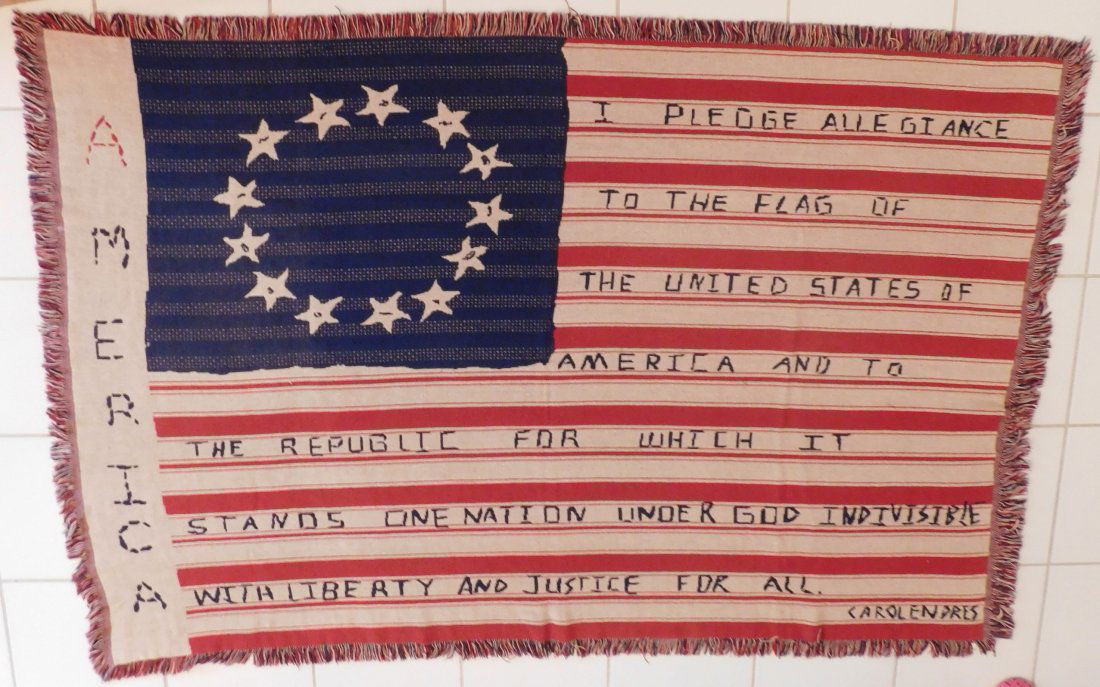 AMERICA
I PLEDGE ALLEGIANCE
TO THE FLAG OF
THE UNITED STATES OF
AMERICA AND TO
THE REPUBLIC FOR WHICH IT
STANDS ONE NATION UNDER GOD INDIVISIBLE
WITH LIBERTY AND JUSTICE FOR ALL.
CAROLENDRES